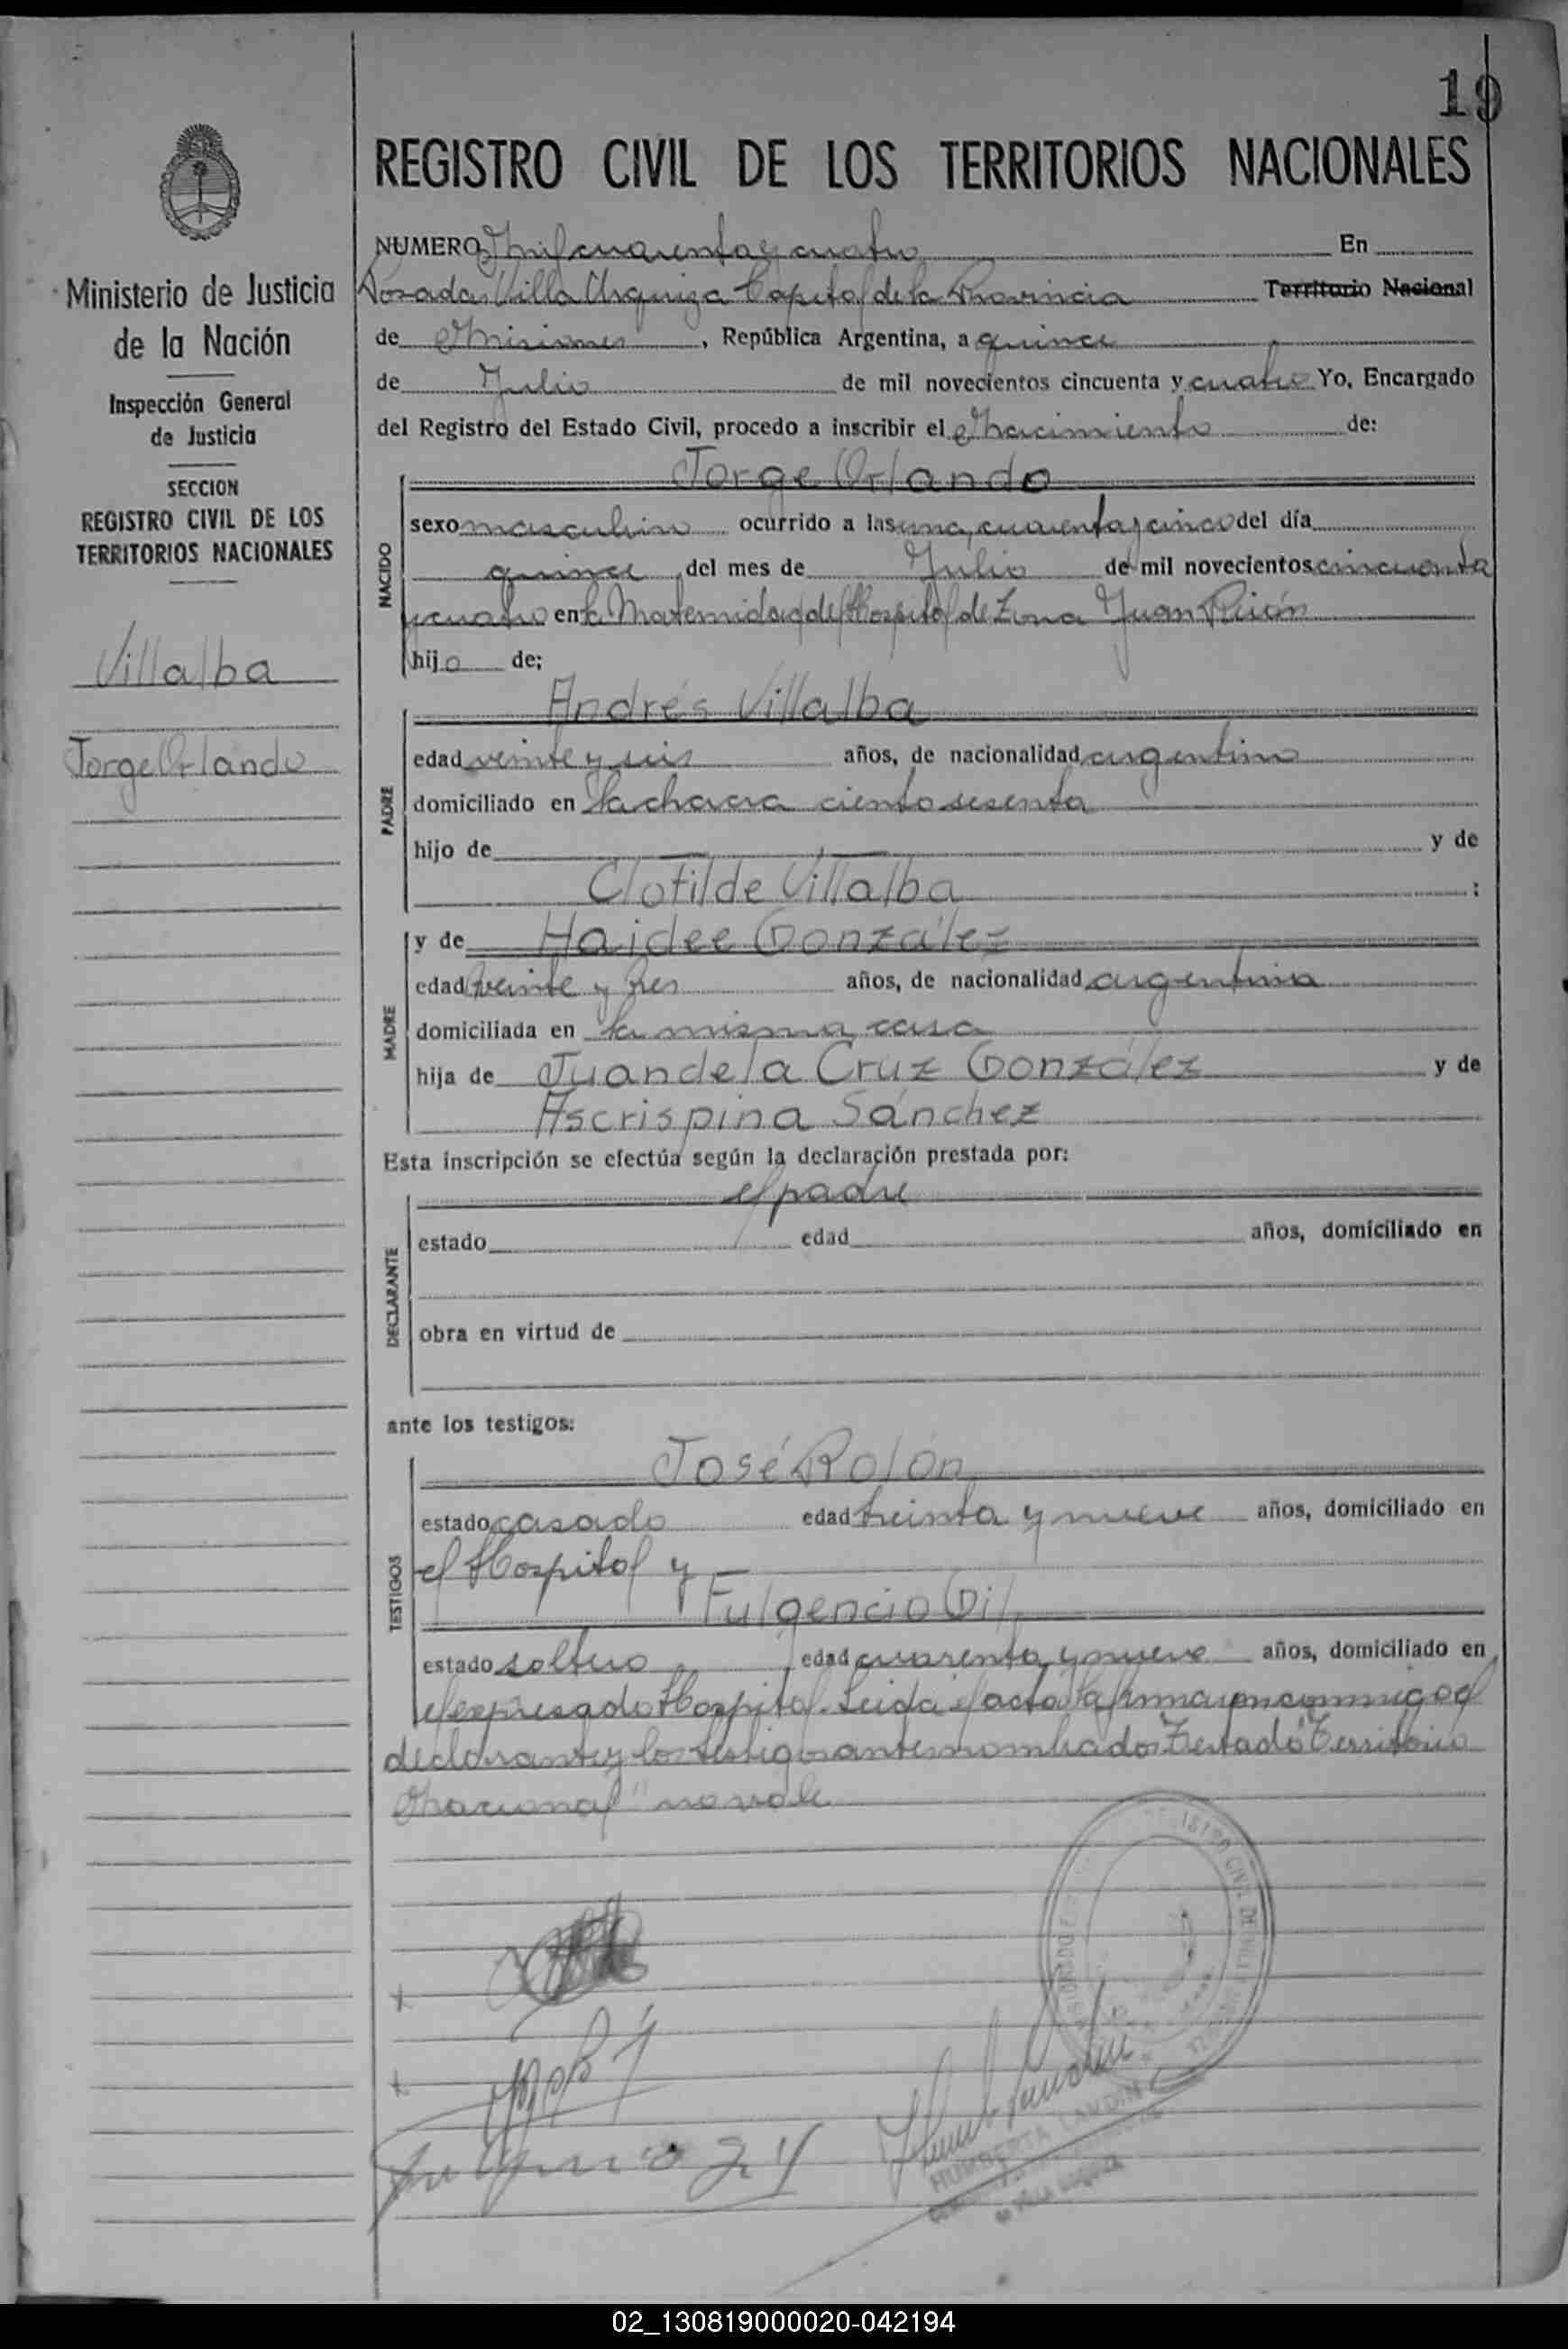 19
REGISTRO CIVIL DE LOS TERRITORIOS NACIONALES
Ministerio de Justicia
de la Nación
Inspección General
de Justicia
SECCION
REGISTRO CIVIL DE LOS
TERRITORIOS NACIONALES
Villalba
Jorge Orlando
NUMERO Mil cuarenta y cuatro En
Posadas Villa Urquiza Capital de la Provincia Territorio Nacional
de Misiones, República Argentina, a quince
de Julio de mil novecientos cincuenta y cuatro Yo, Encargado
del Registro del Estado Civil, procedo a inscribir el Nacimiento de:
Jorge Orlando
NACIDO
sexo masculino ocurrido a las una, cuarenta y cinco del día
quince del mes de Julio de mil novecientos cincuenta
y cuatro en la Maternidad del Hospital de Zona Juan Perón
hijo de;
Andrés Villalba
PADRE
edad veinte y seis años, de nacionalidad argentino
domiciliado en la chacra ciento sesenta
hijo de y de
Clotilde Villalba :
MADRE
y de Haidee González
edad veinte y tres años, de nacionalidad argentina
domiciliada en la misma casa
hija de Juan de la Cruz González y de
Ascrispina Sánchez
Esta inscripción se efectúa según la declaración prestada por:
el padre
DECLARANTE
estado edad años, domiciliado en
obra en virtud de
ante los testigos:
José Rolón
TESTIGOS
estado casado edad treinta y nueve años, domiciliado en
el Hospital y
Fulgencio Gil
estado soltero edad cuarenta y nueve años, domiciliado en
el expresado Hospital. Leida el acta la firmaron conmigo el
declarante y los testigos antes nombrados Testado "Territorio
Nacional" no vale
HUMBERTA LANDIN
02_130819000020-042194